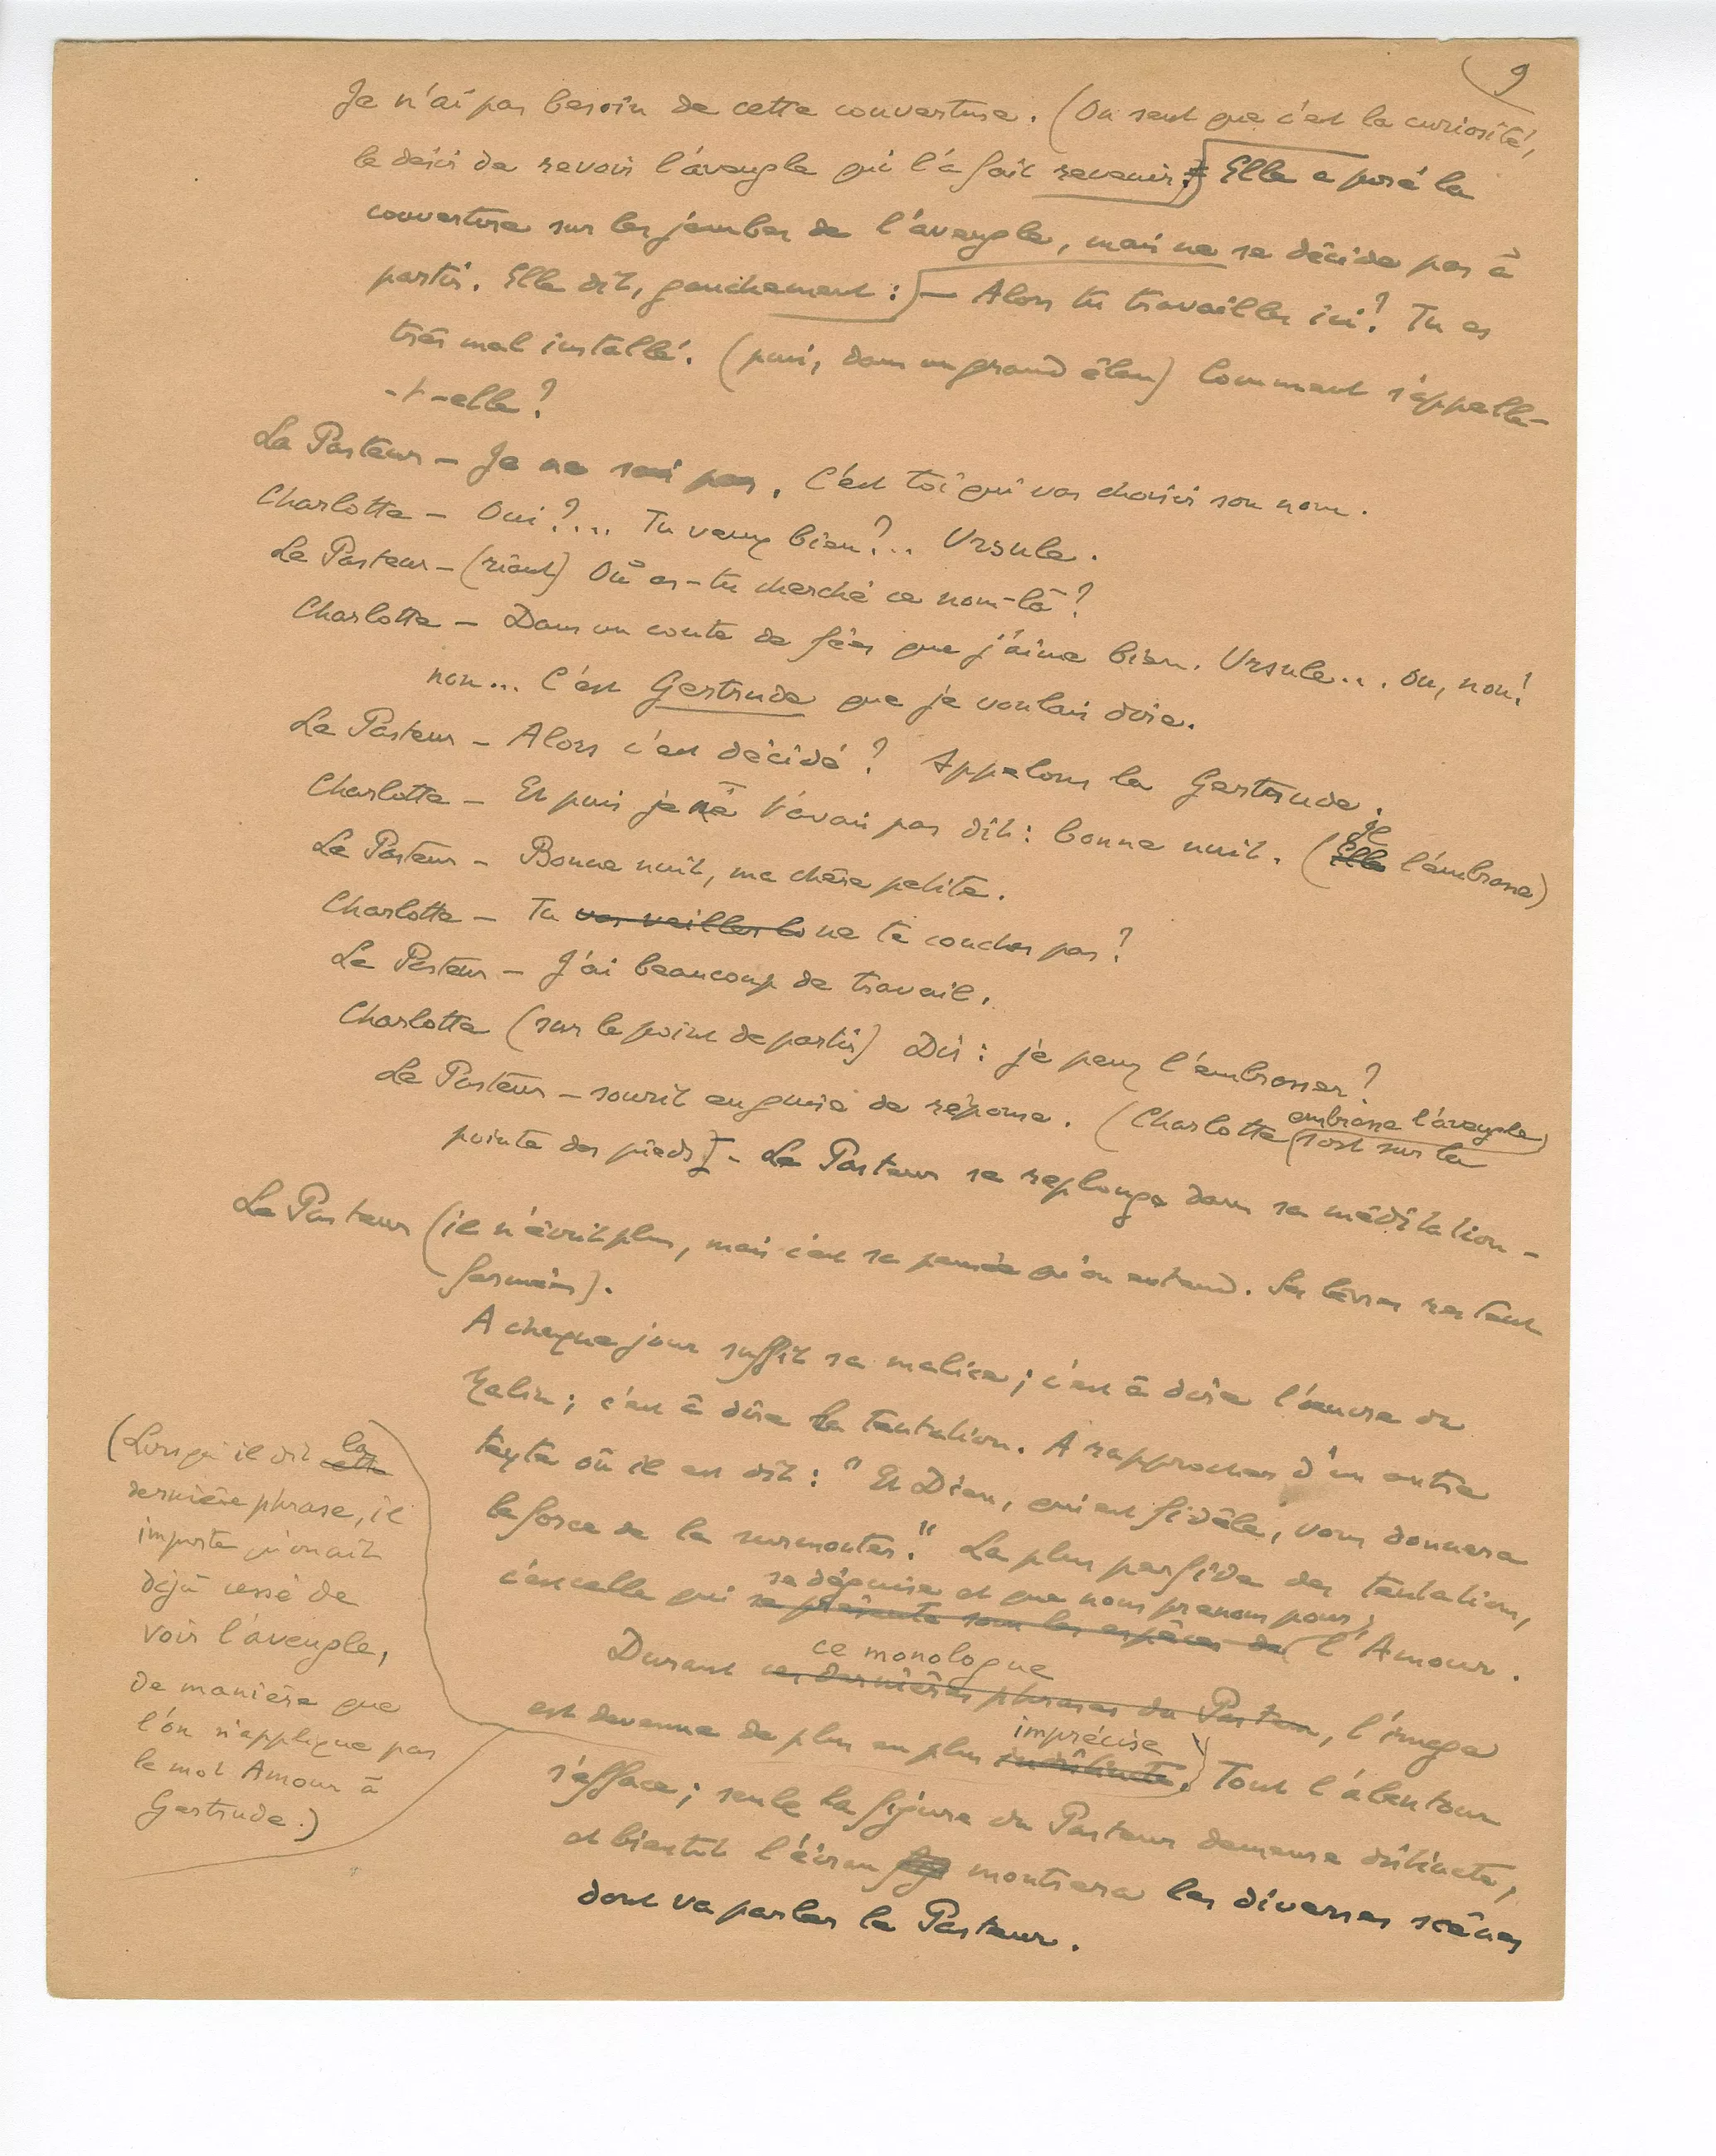 9
Je n'ai pas besoin de cette couverture. (On sent que c'est la curiosité,
le désir de revoir l'aveugle qui l'a fait revenir.) Elle a posé la
couverture sur les jambes de l'aveugle, mais ne se décide pas à
partir. Elle dit, gauchement : — Alors tu travailles ici ? Tu es
très mal installé. (puis, dans un grand élan) Comment s'appelle-
-t-elle ?
Le Pasteur — Je ne sais pas. C'est toi qui vas choisir son nom.
Charlotte — Oui ?... Tu veux bien ?.. Ursule.
Le Pasteur — (riant) Où as-tu cherché ce nom-là ?
Charlotte — Dans un conte de fées que j'aime bien. Ursule... Ou, non !
non... C'est Gertrude que je voulais dire.
Le Pasteur — Alors c'est décidé ? Appelons la Gertrude.
Charlotte — Et puis je ne t'avais pas dit : bonne nuit. (
Il
Elle l'embrasse)
Le Pasteur — Bonne nuit, ma chère petite.
Charlotte — Tu vas veiller ne te couches pas ?
Le Pasteur — J'ai beaucoup de travail.
Charlotte (sur le point de partir) Dis : je peux l'embrasser ?
Le Pasteur — sourit en guise de réponse. (Charlotte
embrasse l'aveugle)
(sort sur la
pointe des pieds) - Le Pasteur se replonge dans sa méditation -
Le Pasteur (il n'écrit plus, mais c'est sa pensée qu'on entend. Ses lèvres restent
fermées).
A chaque jour suffit sa malice ; c'est à dire l'œuvre du
Malin ; c'est à dire la tentation. A rapprocher d'un autre
texte où il est dit : " Et Dieu, qui est fidèle, vous donnera
la force de la surmonter." La plus perfide des tentations,
se déguise et que nous prenons pour
c'est celle qui se présente sous les espèces de l'Amour.
ce monologue
Durant ces dernières phrases du Pasteur, l'image
imprécise
est devenue de plus en plus indistincte. Tout l'alentour
s'efface ; seule la figure du Pasteur demeure distincte,
et bientôt l'écran montrera les diverses scènes
dont va parler le Pasteur.
(Lorsqu'il dit
la
cette
dernière phrase, il
importe qu'on ait
déjà cessé de
voir l'aveugle,
de manière que
l'on n'applique pas
le mot Amour à
Gertrude.)